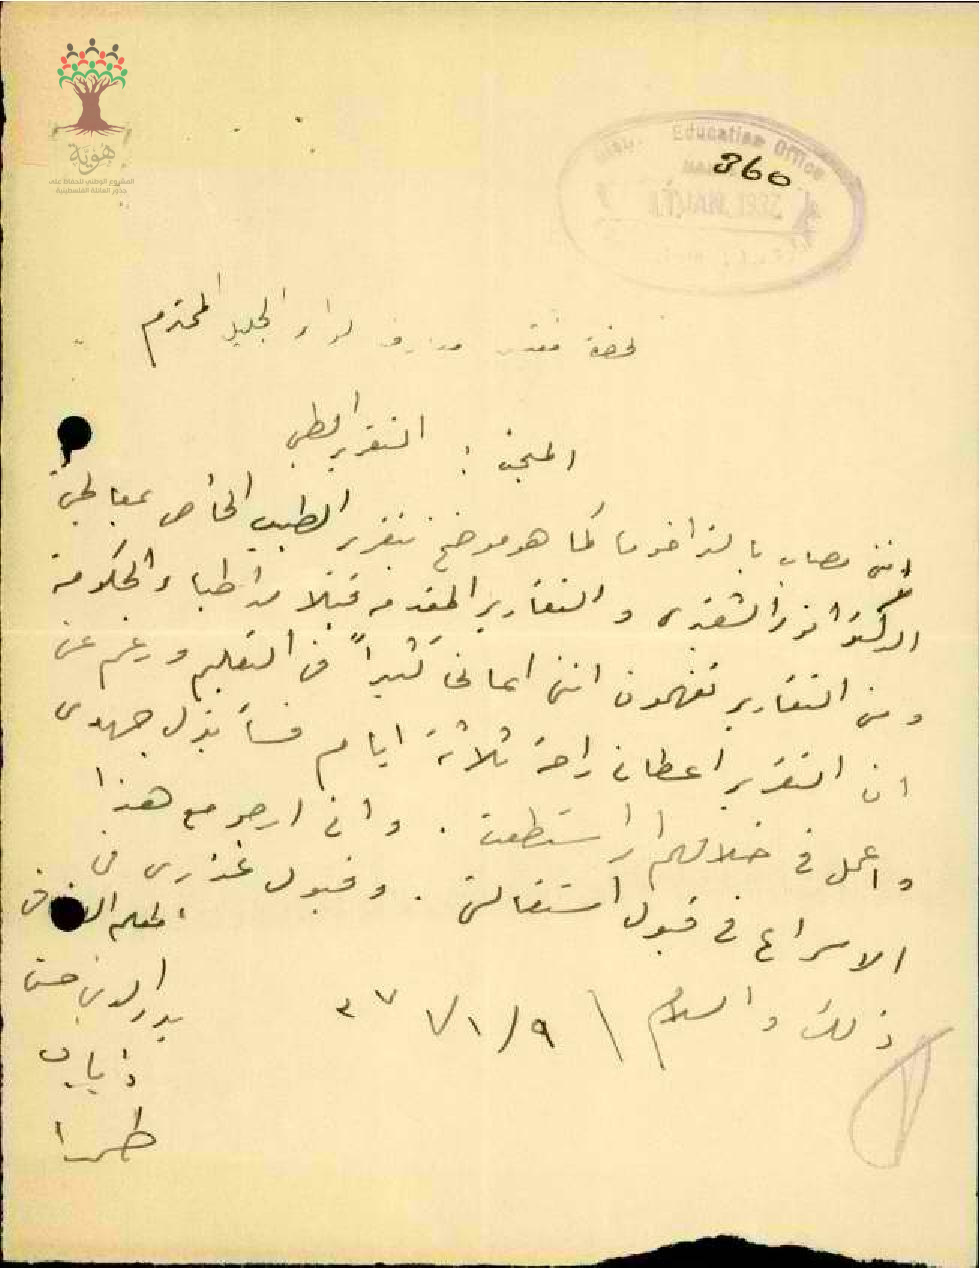 هوية
المشروع الوطني للحفاظ على
جذور العائلة الفلسطينية
Education Office
360
JAN. 1937
لحضرة مفتش معارف لواء الجليل المحترم
المبحث : التقرير الطبي
انني مصاب بالتراخوما كما هو موضح بتقرير الطبيب الخاص بمعالجتي
الدكتور انور الشقيري والتقارير المقدمة قبلا من اطباء الحكومة
ومن التقارير تفهمون انني اعاني كثيراً في التعليم ورغم عن
ان التقرير اعطاني راحة ثلاثة ايام فسأبذل جهدي
واعمل في خلالهم اذا استطعت . واني ارجو مع هذا
الاسراع في قبول استقالتي . وقبول عذري في
ذلك والسلام \ ٩/١/ ٣٧
معلم
بدر الدين حسن
ذياب
طمرا